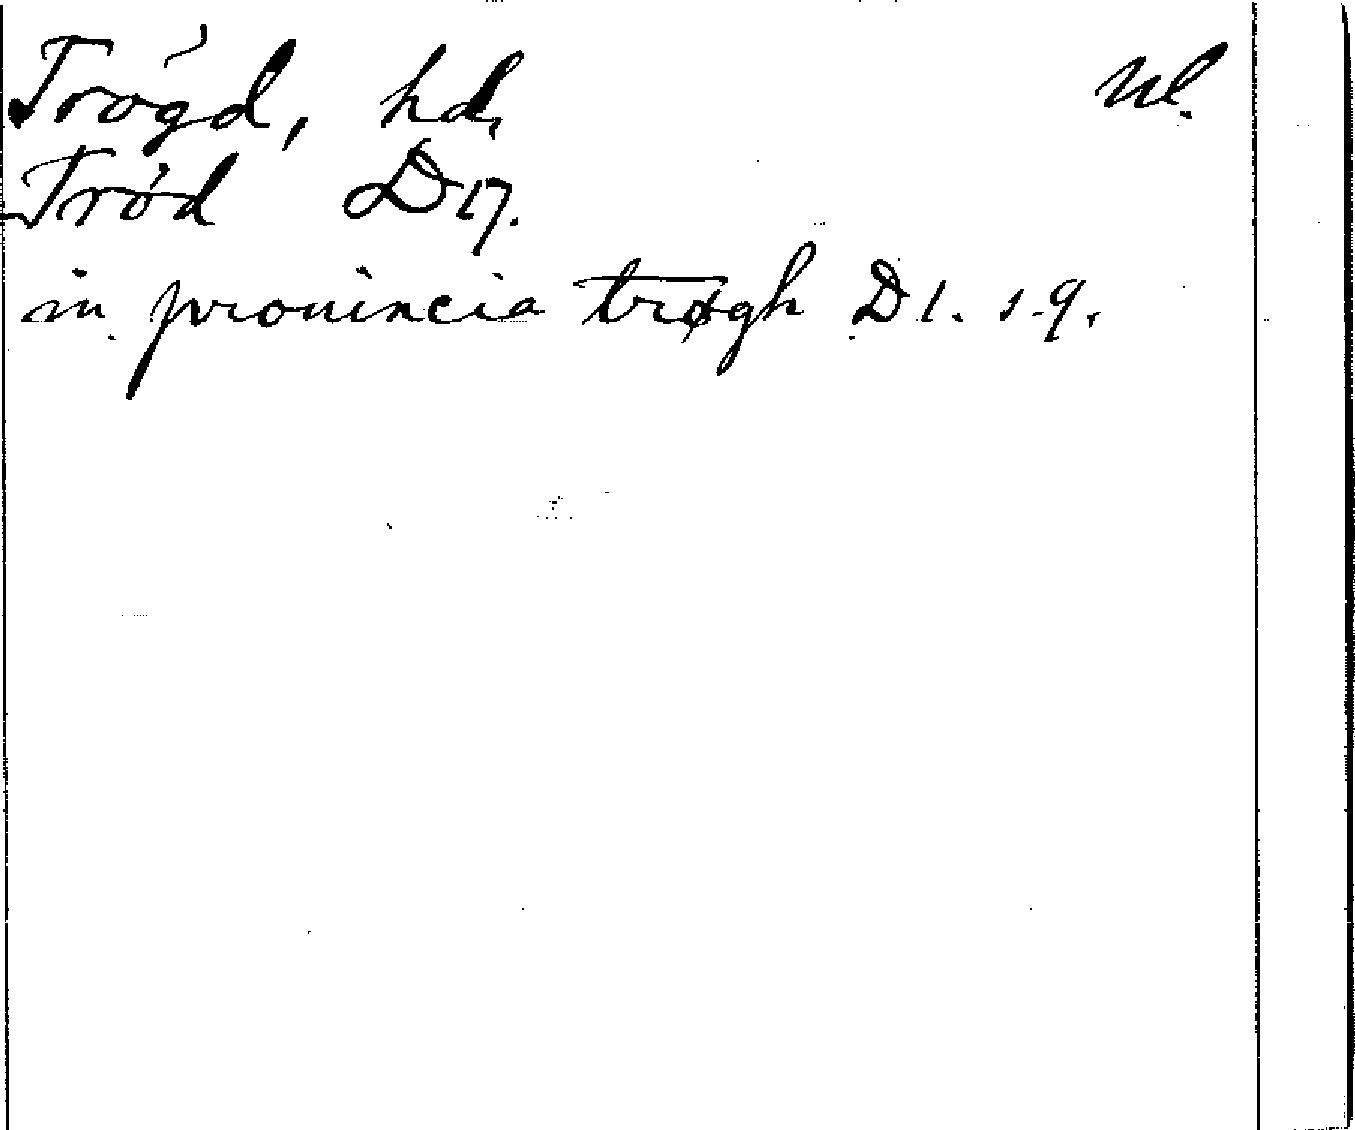 Trögd, hd, Ul.
Tröd D 17.
in prouincia trøgh D 1. s. 9.